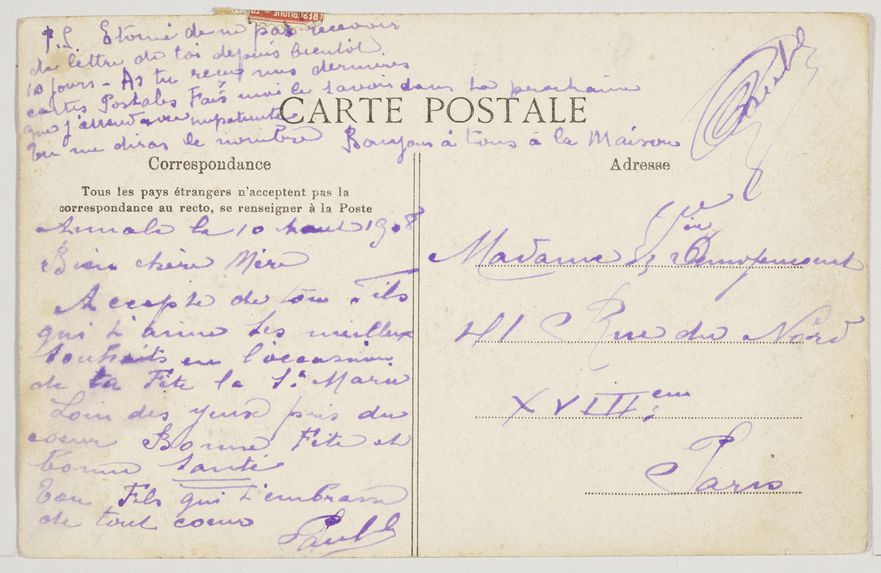 P.S. Etonné de ne pas recevoir
de lettre de toi depuis bientôt
10 jours - As tu reçus mes dernieres
cartes Postales Fais moi le savoir dans ta prochaine
que j'attend avec impatience
Tu me diras le nombre Bonjour à tous à la Maison
CARTE POSTALE
Correspondance
Tous les pays étrangers n'acceptent pas la
correspondance au recto, se renseigner à la Poste
Aumale le 10 Aout 1908
Bien chère Mère
Accepte de ton Fils
qui t'aime les meilleux
souhaits en l'occasion
de ta Fête la Ste Marie
Loin des yeux près du
coeur Bonne Fête et
bonne santé
Ton Fils qui t'embrasse
de tout coeur
Paul
Adresse
Madame
41 Rue du Nord
XVIII em
Paris